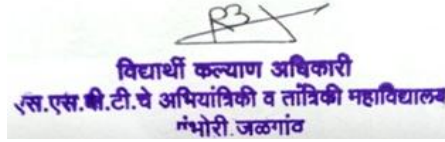 विद्यार्थी कल्याण अधिकारी
एस.एस.बी.टी.चे अभियांत्रिकी व तांत्रिकी महाविद्यालय
जळगांव